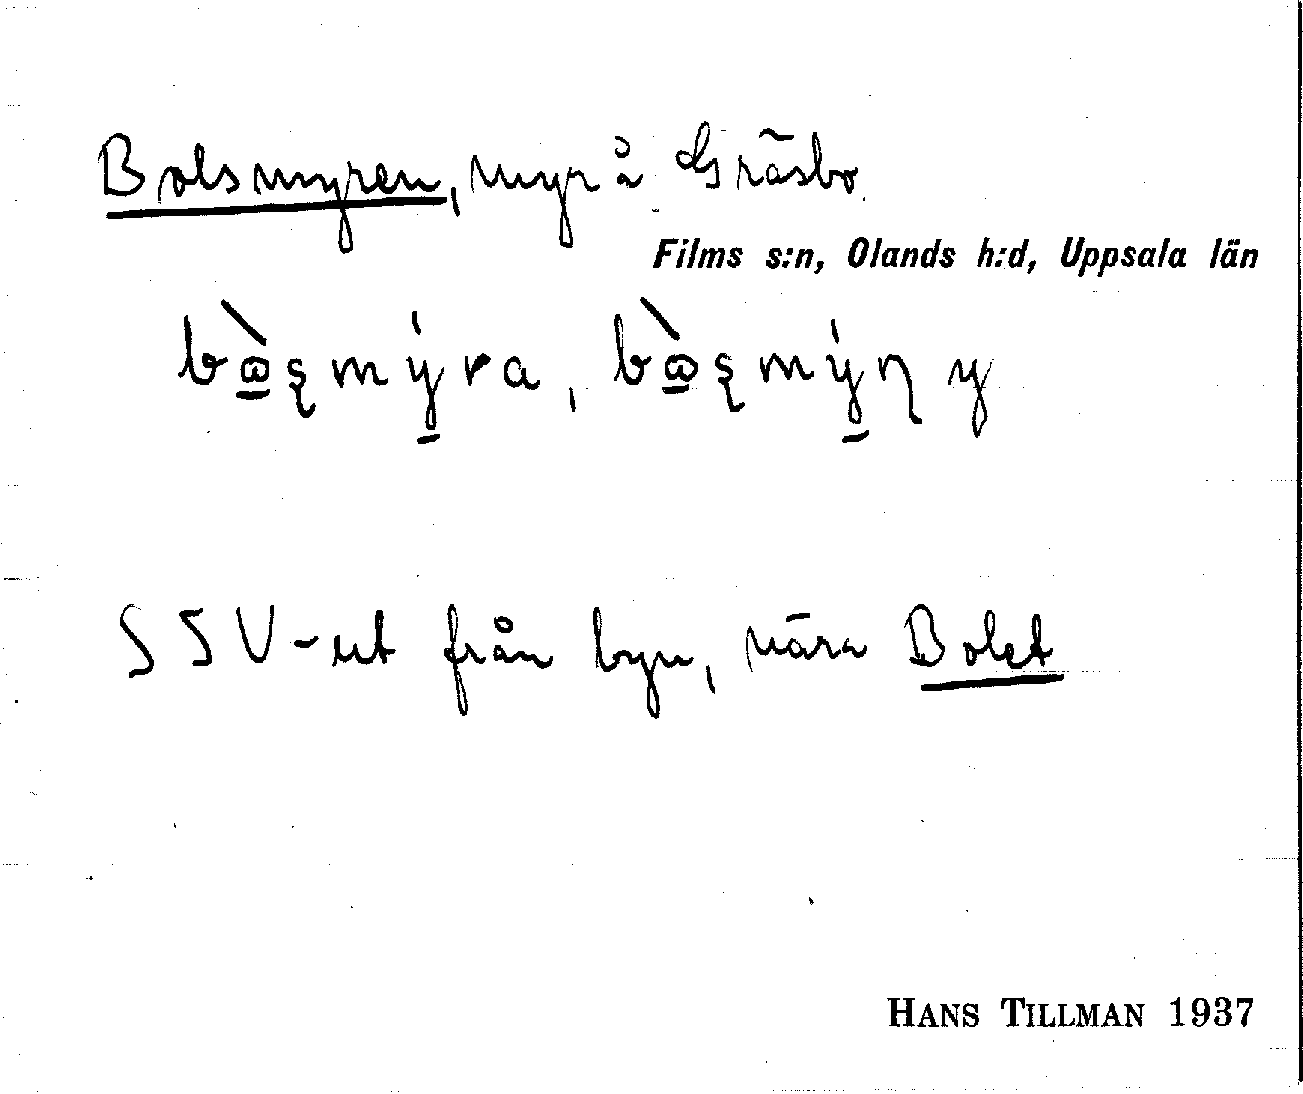 Bolsmyren, myr å Gräsbo
Films s:n, Olands h:d, Uppsala län
SSV-ut från byn, nära Bolet
HANS TILLMAN 1937